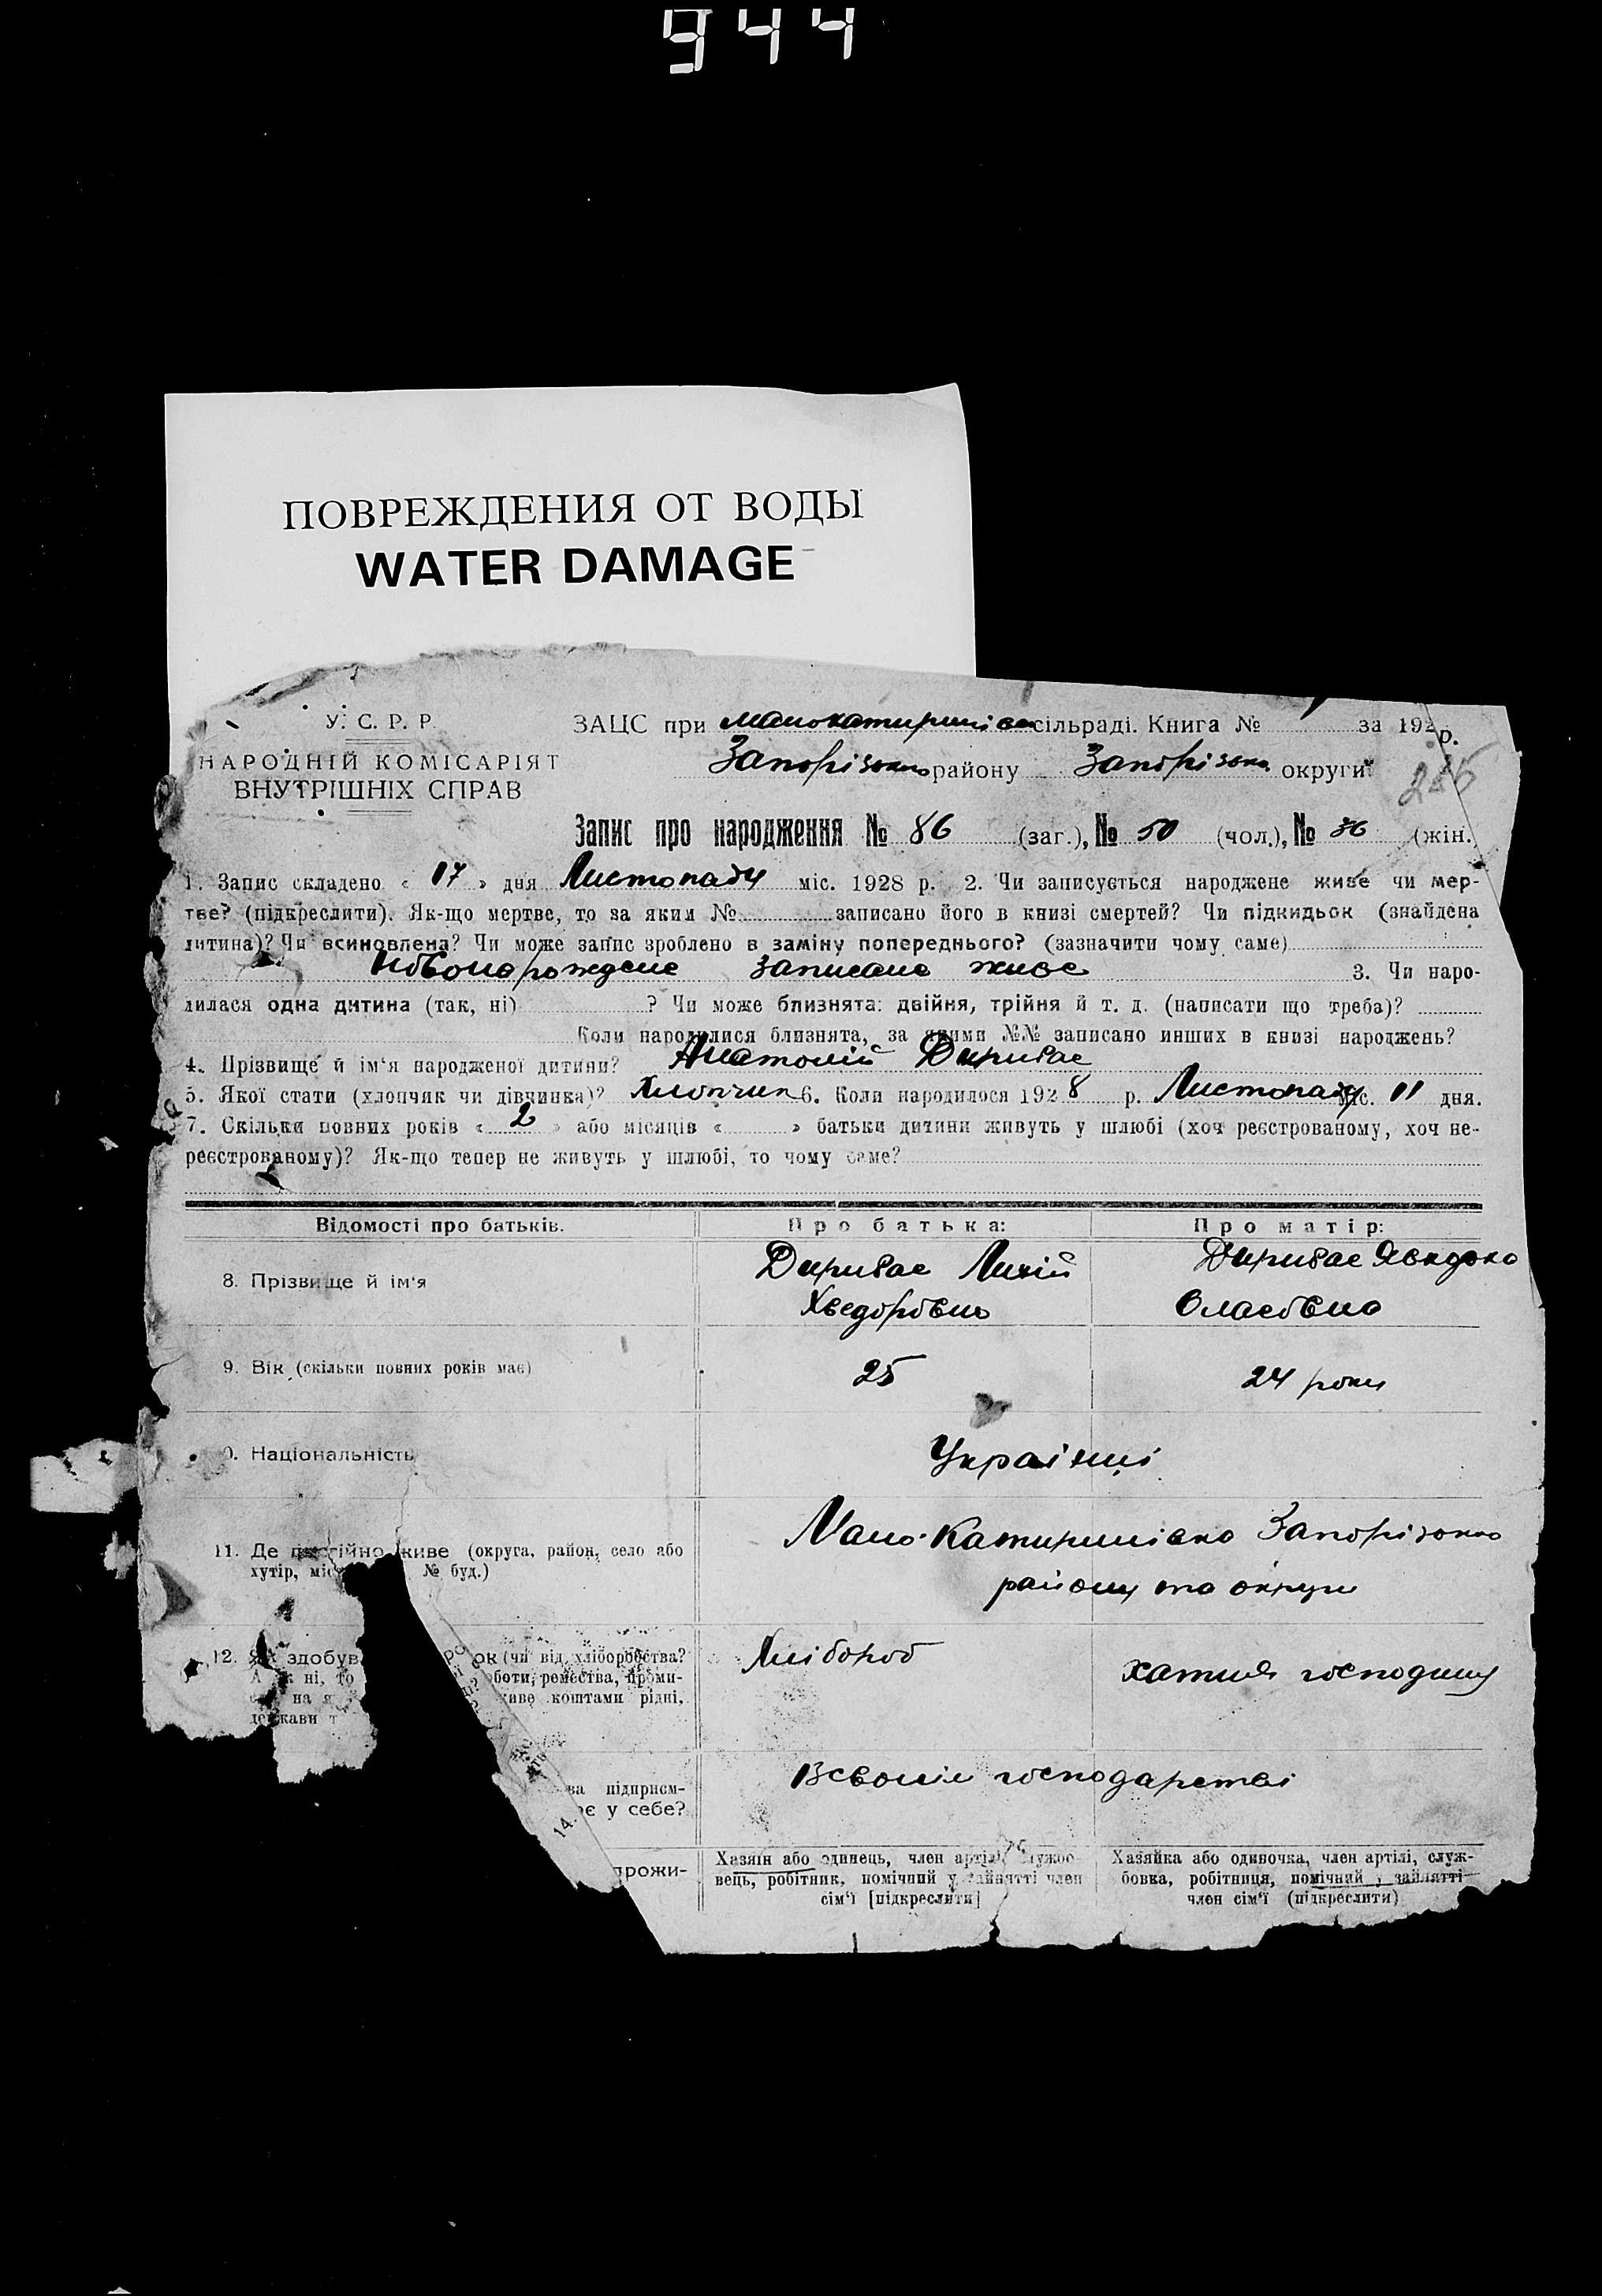 944
ПОВРЕЖДЕНИЯ ОТ ВОДЫ
WATER DAMAGE
У. С. Р. Р.
НАРОДНІЙ КОМІСАРІЯТ
ВНУТРІШНІХ СПРАВ
ЗАЦС при сільраді. Книга № за 192 р.
району округи
Запис про народження № 86 (заг.), № 50 (чол.), № 36 (жін.
1. Запис складено « 17 » дня Листопаду міс. 1928 р. 2. Чи записується народжене живе чи мер-
тве? (підкреслити). Як-що мертве, то за яким № записано його в книзі смертей? Чи підкидьок (знайдена
дитина)? Чи всиновлена? Чи може запис зроблено в заміну попереднього? (зазначити чому саме)
записане живе 3. Чи наро-
дилася одна дитина (так, ні) ? Чи може близнята: двійня, трійня й т. д. (написати що треба)?
Коли народилися близнята, за якими №№ записано инших в книзі народжень?
4. Прізвище й ім‘я народженої дитини? Анатолій Дирибас
5. Якої стати (хлопчик чи дівчинка)? Хлопчик 6. Коли народилося 1928 р. Листопаду міс. 11 дня.
7. Скільки повних років « 2 » або місяців « » батьки дитини живуть у шлюбі (хоч реєстрованому, хоч не-
реєстрованому)? Як-що тепер не живуть у шлюбі, то чому саме?
Відомості про батьків. Про батька: Про матір:
8. Прізвище й ім‘я Дирибас Дирибас Явдоха
Хведорович Власовна
9. Вік (скільки повних років має) 25 24 роки
0. Національність Українці
11. Де постійно живе (округа, район, село або
хутір, № буд.)
району та округи
12. Як здобув ок (чи від хліборобства?
ні, то боти, ремества, проми-
на я живе коштами рідні,
держави т
Хлібороб хатня господиня
ва підприєм-
оє у себе?
Всвоїм господарстві
14.
прожи-
Хазяїн або одинець, член артілі, службо- Хазяйка або одиночка, член артілі, служ-
вець, робітник, помічний у зайнятті член бовка, робітниця, помічний у зайнятті
сім‘ї [підкреслити] член сім‘ї (підкреслити)